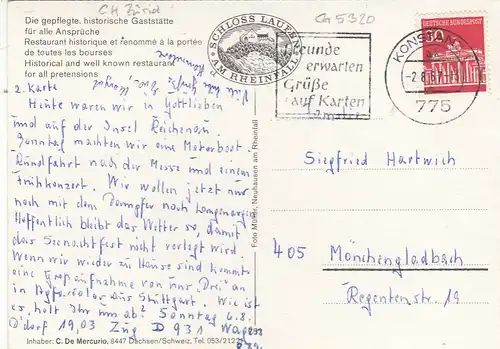 CH Zürich
CH 5320
Die gepflegte, historische Gaststätte
für alle Ansprüche
Restaurant historique et renommé à la portée
de toutes les bourses
Historical and well known restaurant
for all pretensions
SCHLOSS LAUFEN
AM RHEINFALL
Freunde
erwarten
Grüße
auf Karten
KONSTANZ
-2.8.67
775
DEUTSCHE BUNDESPOST
2. Karte
Heute waren wir in Gottlieben
und auf der Insel Reichenau.
Sonntag machten wir eine Motorboot-
Rundfahrt nach der Messe und einem
Frühkonzert. Wir wollen jetzt nur
noch mit dem Dampfer nach Langenargen
Hoffentlich bleibt das Wetter so, damit
das Seenachtfest nicht verlegt wird.
Wenn wir wieder zu Hause sind kommt
eine Großaufnahme von uns "Drei" an
in Agfacolor aus Stuttgart. Wie ist
es, holt Ihr uns ab? Sonntag 6.8.
D'dorf 19,03 Zug D 931 Wagen
Siegfried Hartwich
405 Mönchengladbach
Regentenstr. 19
Foto Müller, Neuhausen am Rheinfall
Inhaber: C. De Mercurio, 8447 Dachsen/Schweiz, Tel. 053/21221